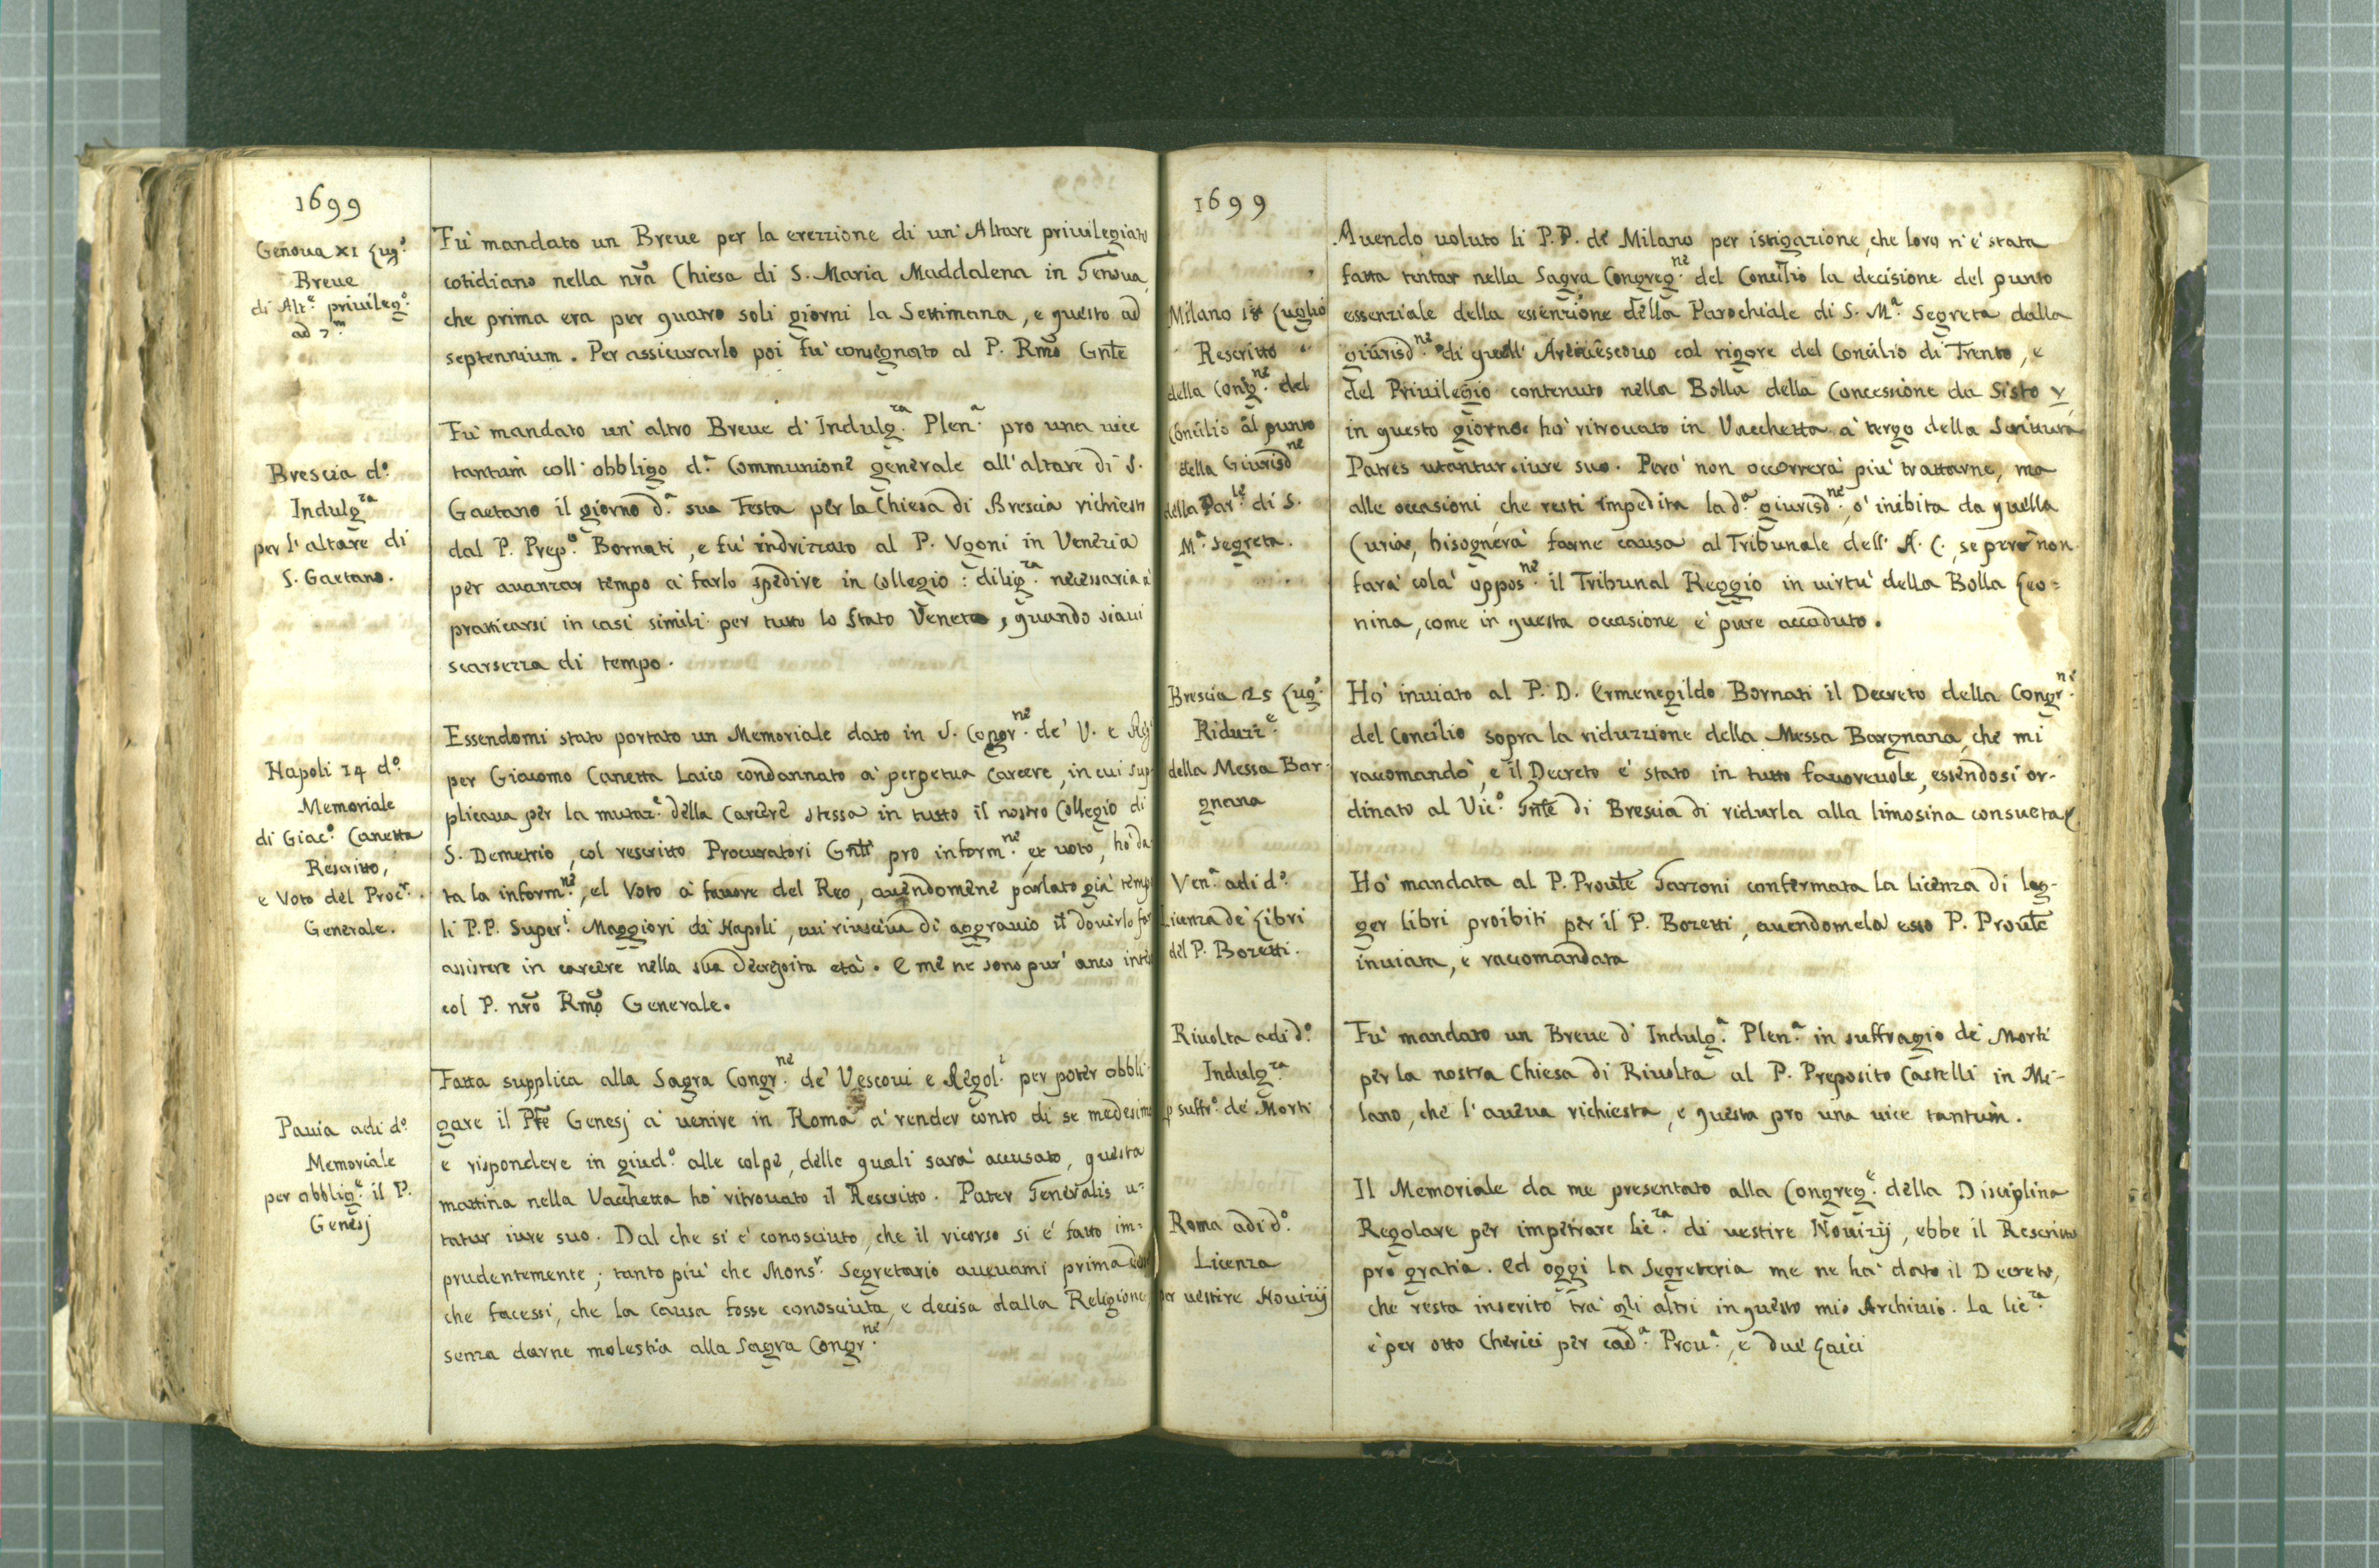 1699
Genoua XI Lug.º
Breue
di Alt.e priuileg.º
ad 7.m
Fu' mandato un Breue per la erezzione di un' Altare priuilegiato
cotidiano nella nrã Chiesa di S. Maria Maddalena in Genoua,
che prima era per quatro soli giorni la Settimana, e questo ad
septennium. Per assicurarlo poi fu' consegnato al P. Rmõ Gnłe
Brescia d.º
Indulg.za
per l'altare di
S. Gaetano.
Fu' mandato un' altro Breue d' Indulg.za Plen.a pro una uice
tantum coll' obbligo d.a Communione generale all' altare di S.
Gaetano il giorno d.a sua Festa per la Chiesa di Brescia richiesto
dal P. Prep.º Bornati, e fu' indrizzato al P. Vgoni in Venezia
per auanzar tempo a' farlo spedire in Collegio: dilig.za necessaria a'
pratticarsi in casi simili per tutto lo Stato Veneto, quando siaui
scarsezza di tempo.
Napoli 14 d.º
Memoriale
di Giac.º Canetta
Rescritto,
e Voto del Proc.r
Generale.
Essendomi stato portato un Memoriale dato in S. Congr.ne de' V. e Reg.
per Giacomo Canetta Laico condannato a' perpetua Carcere, in cui sup-
plicaua per la mutaz.e della Carcere stessa in tutto il nostro Collegio di
S. Demetrio, col rescritto Procuratori Gnłi pro inform.ne, et uoto, ho' da-
ta la inform.ne, el Voto a' fauore del Reo, auendomene parlato gia' temp
li P.P. Super.i Maggiori di Napoli, cui riusciua di aggrauio il douirlo far
assistere in carcere nella sua decrepita età. E me ne sono pur' anco intes
col P. nrõ Rmõ Generale.
Pauia adi d.º
Memoriale
per obblig.e il P.
Genesj
Fatta supplica alla Sagra Congr.ne de' Vescoui e Regol.i per poter obbli-
gare il Pr̃e Genesj a' uenire in Roma a' render conto di se medesimo
e rispondere in giud.º alle colpe, delle quali sara' accusato, questa
mattina nella Vacchetta ho' ritrouato il Rescritto. Pater Generalis u=
tatur iure suo. Dal che si e' conosciuto, che il ricorso si e' fatto im=
prudentemente; tanto piu' che Mons.r Segretario aueuami prima detto
che facessi, che la Causa fosse conosciuta, e decisa dalla Religione
senza darne molestia alla Sagra Congr.ne
1699
Milano 18 Luglio
Rescritto
della Cong.ne del
Concilio al punto
della Giurisd.ne
della Par.le di S.
M.a Segreta.
Auendo uoluto li P.P. de' Milano per istigazione, che loro n'e' stata
fatta tentar nella Sagra Congreg.ne del Concilio la decisione del punto
essenziale della essenzione della Parochiale di S. M.a Segreta dalla
giurisd.ne di quell' Arciuescouo col rigore del Concilio di Trento, e
del Priuilegio contenuto nella Bolla della Concessione da Sisto V,
in questo giorno ho' ritrouato in Vacchetta a' tergo della Scrittura
Patres utantur iure suo. Pero' non occorrera' piu' trattarne, ma
alle occasioni, che resti impedita la d.a giurisd.ne, o' inibita da quella
Curia, bisognera' farne causa al Tribunale dell' A. C., se pero' non
fara' cola' oppos.ne il Tribunal Reggio in uirtu' della Bolla Leo=
nina, come in questa occasione e' pure accaduto.
Brescia 25 Lug.º
Riduzz.e
della Messa Bar-
gnana
Ho' inuiato al P. D. Ermenegildo Bornati il Decreto della Congr.ne
del Concilio sopra la riduzzione della Messa Bargnana, che mi
raccomando', e il Decreto e' stato in tutto fauoreuole, essendosi or-
dinato al Vic.º Gnłe di Brescia di ridurla alla limosina consueta
Ven.a adi d.º
Licenza de' Libri
del P. Bozetti.
Ho' mandata al P. Proułe Garzoni confermata la Licenza di leg-
ger libri proibiti per il P. Bozetti, auendomela esso P. Proułe
inuiata, e raccomandata
Riuolta adi d.º
Indulg.za
p suffr.º de' Morti
Fu' mandato un Breue d' Indulg.a Plen.a in suffragio de' Morti
per la nostra Chiesa di Riuolta al P. Preposito Castelli in Mi-
lano, che l' aueua richiesta, e questa pro una uice tantum.
Roma adi d.º
Licenza
per uestire Nouizij
Il Memoriale da me presentato alla Congreg.e della Disciplina
Regolare per impetrare lic.za di uestire Nouizij, ebbe il Rescritto
pro gratia. Ed oggi la Segreteria me ne ha' dato il Decreto,
che resta inserito tra' gli altri in questo mio Archiuio. La lic.za
e' per otto Cherici per cad.a Prou.a, e due Laici